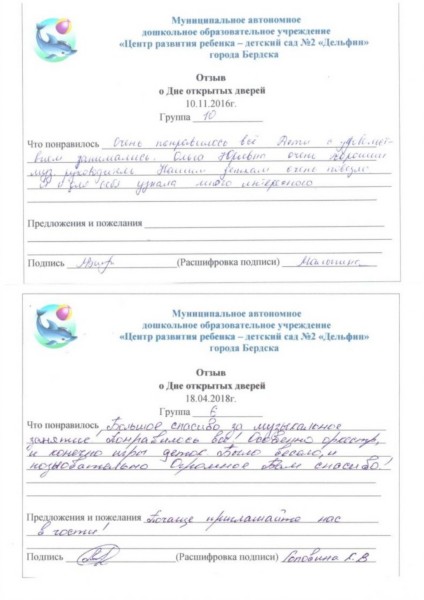 Муниципальное автономное
дошкольное образовательное учреждение
«Центр развития ребенка – детский сад №2 «Дельфин»
города Бердска
Отзыв
о Дне открытых дверей
10.11.2016г.
Группа 10
Что понравилось Очень понравилось всё Дети с удовольст-
вием занимались. Ольга Юрьевна очень хороший
муз. руководитель Нашим деткам очень повезло
Я для себя узнала много интересного
Предложения и пожелания
Подпись (Расшифровка подписи)
Муниципальное автономное
дошкольное образовательное учреждение
«Центр развития ребенка – детский сад №2 «Дельфин»
города Бердска
Отзыв
о Дне открытых дверей
18.04.2018г.
Группа 6
Что понравилось Большое спасибо за музыкальное
занятие! Понравилось всё! Особенно оркестр,
и конечно игры деток Было весело, и
познавательно Огромное Вам спасибо!
Предложения и пожелания Почаще приглашайте нас
в гости!
Подпись (Расшифровка подписи)